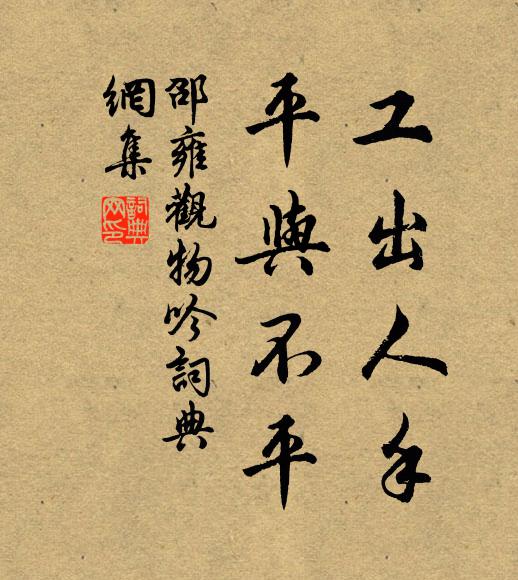 工出人手
平與不平
邵雍觀物吟詞典
網集
詞典网印